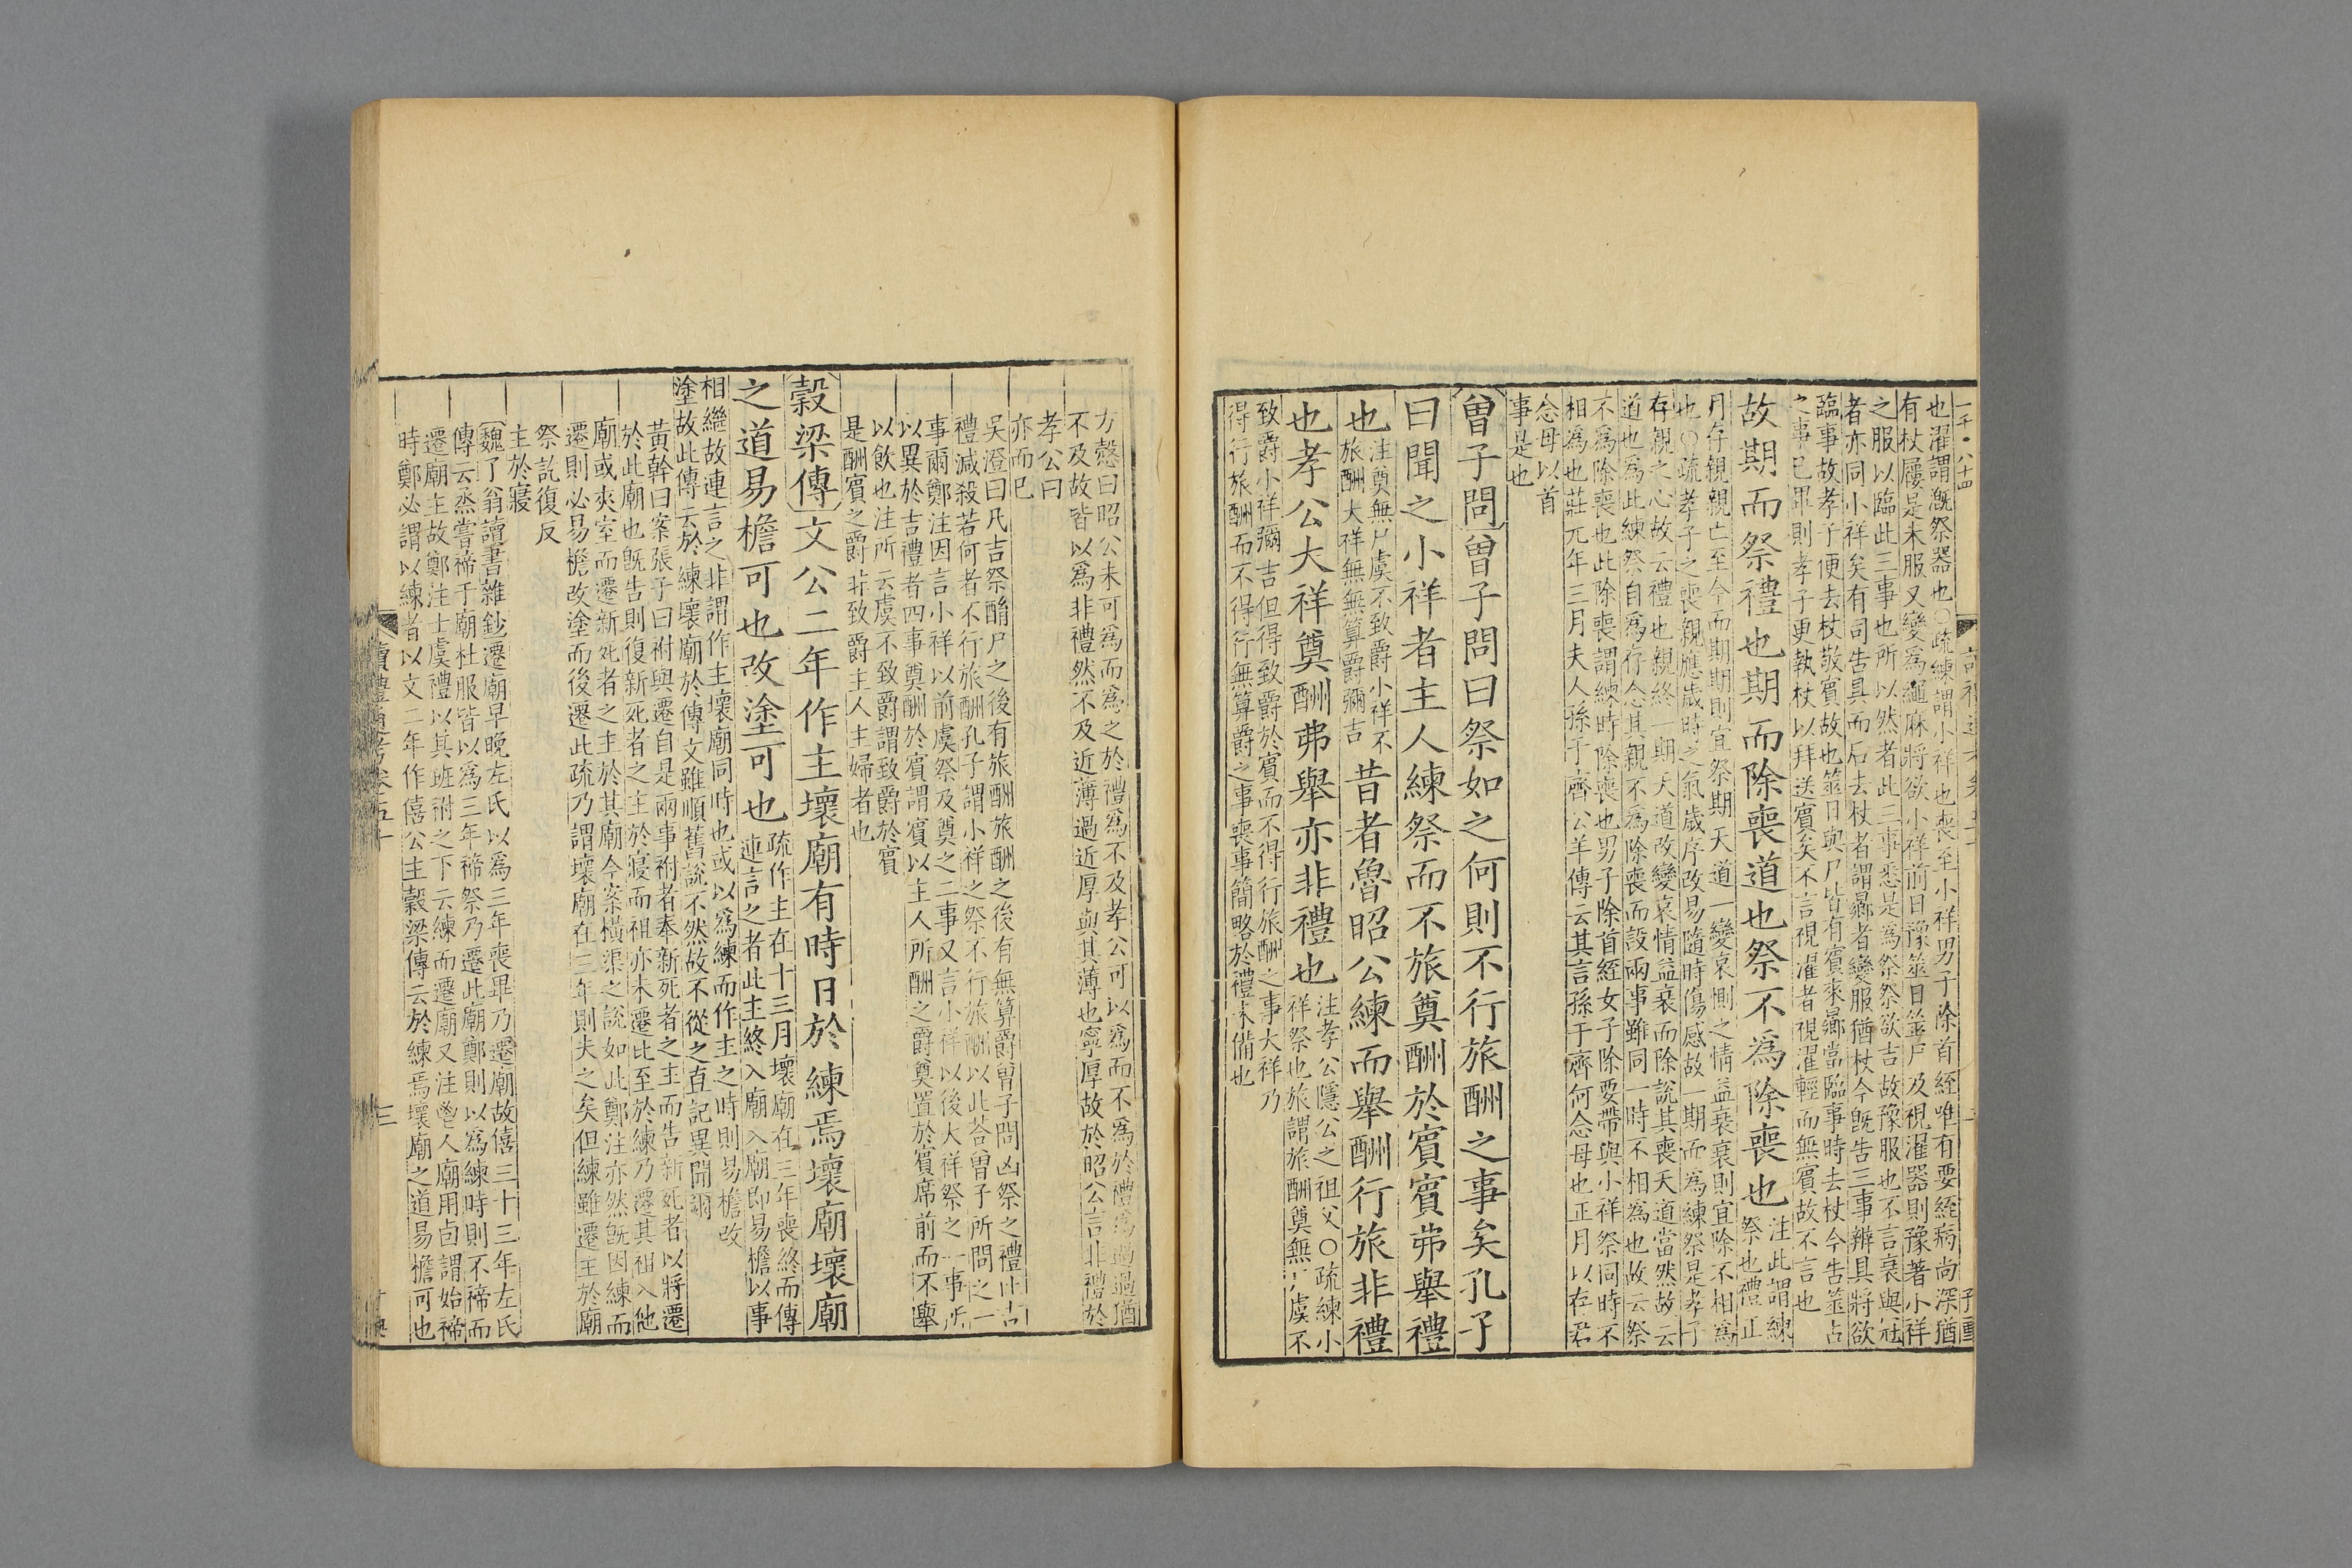 一千八十四
也濯謂漑祭器也○疏練謂小祥也喪至小祥男子除首絰唯有要絰病尚深猶
有杖屨是末服又變爲繩麻將欲小祥前日豫筮日筮尸及視濯器則豫著小祥
之服以臨此三事也所以然者此三事悉是爲祭祭欲吉故豫服也不言衰與冠
者亦同小祥矣有司告具而后去杖者謂曏者變服猶杖今旣告三事辦具將欲
臨事故孝子便去杖敬賓故也筮日與尸皆有賓來曏當臨事時去杖今告筮占
之事已畢則孝子更執杖以拜送賓矣不言視濯者視濯輕而無賓故不言也
故期而祭禮也期而除喪道也祭不爲除喪也
注此謂練
祭也禮正
月存親親亡至今而期期則宜祭期天道一變哀惻之情益衰衰則宜除不相爲
也○疏孝子之喪親應歲時之氣歲序改易隨時傷感故一期而爲練祭是孝子
存親之心故云禮也親終一期天道改變哀情益衰而除說其喪天道當然故云
道也爲此練祭自爲存念其親不爲除喪而設兩事雖同一時不相爲也故云祭
不爲除喪也此除喪謂練時除喪也男子除首絰女子除要帶與小祥祭同時不
相爲也莊元年三月夫人孫于齊公羊傳云其言孫于齊何念母也正月以存君
念母以首
事是也
曾子問曾子問曰祭如之何則不行旅酬之事矣孔子
曰聞之小祥者主人練祭而不旅奠酬於賓賓弗舉禮
也
注奠無尸虞不致爵小祥不
旅酬大祥無無算爵彌吉
昔者魯昭公練而舉酬行旅非禮
也孝公大祥奠酬弗舉亦非禮也
注孝公隱公之祖父○疏練小
祥祭也旅謂旅酬奠無尸虞不
致爵小祥彌吉但得致爵於賓而不得行旅酬之事大祥乃
得行旅酬而不得行無算爵之事喪事簡略於禮未備也
方慤曰昭公未可爲而爲之於禮爲不及孝公可以爲而不爲於禮爲過過猶
不及故皆以爲非禮然不及近薄過近厚與其薄也寧厚故於昭公言非禮於
孝公曰
亦而已
吳澄曰凡吉祭酳尸之後有旅酬旅酬之後有無算爵曾子問凶祭之禮比吉
禮減殺若何者不行旅酬孔子謂小祥之祭不行旅酬以此荅曾子所問之一
事爾鄭注因言小祥以前虞祭及奠之二事又言小祥以後大祥祭之一事所
以異於吉禮者四事奠酬於賓謂賓以主人所酬之爵奠置於賓席前而不舉
以飮也注所云虞不致爵謂致爵於賓
是酬賓之爵非致爵主人主婦者也
穀梁傳文公二年作主壞廟有時日於練焉壞廟壞廟
之道易檐可也改塗可也
疏作主在十三月壞廟在三年喪終而傳
連言之者此主終入廟入廟卽易檐以事
相繼故連言之非謂作主壞廟同時也或以爲練而作主之時則易檐改
塗故此傳云於練壞廟於傳文雖順舊說不然故不從之直記異聞爾
黃幹曰案張子曰祔與遷自是兩事祔者奉新死者之主而告新死者以將遷
於此廟也旣告則復新死者之主於寢而祖亦未遷比至於練乃遷其祖入他
廟或夾室而遷新死者之主於其廟今案橫渠之說如此鄭注亦然旣因練而
遷則必易檐改塗而後遷此疏乃謂壞廟在三年則失之矣但練雖遷主於廟
祭訖復反
主於寢
魏了翁讀書雜鈔遷廟早晚左氏以爲三年喪畢乃遷廟故僖三十三年左氏
傳云烝嘗禘于廟杜服皆以爲三年禘祭乃遷此廟鄭則以爲練時則不禘而
遷廟主故鄭注士虞禮以其班祔之下云練而遷廟又注鬯人廟用卣謂始禘
時鄭必謂以練者以文二年作僖公主穀梁傳云於練焉壞廟之道易檐可也
讀禮通考卷五十
三